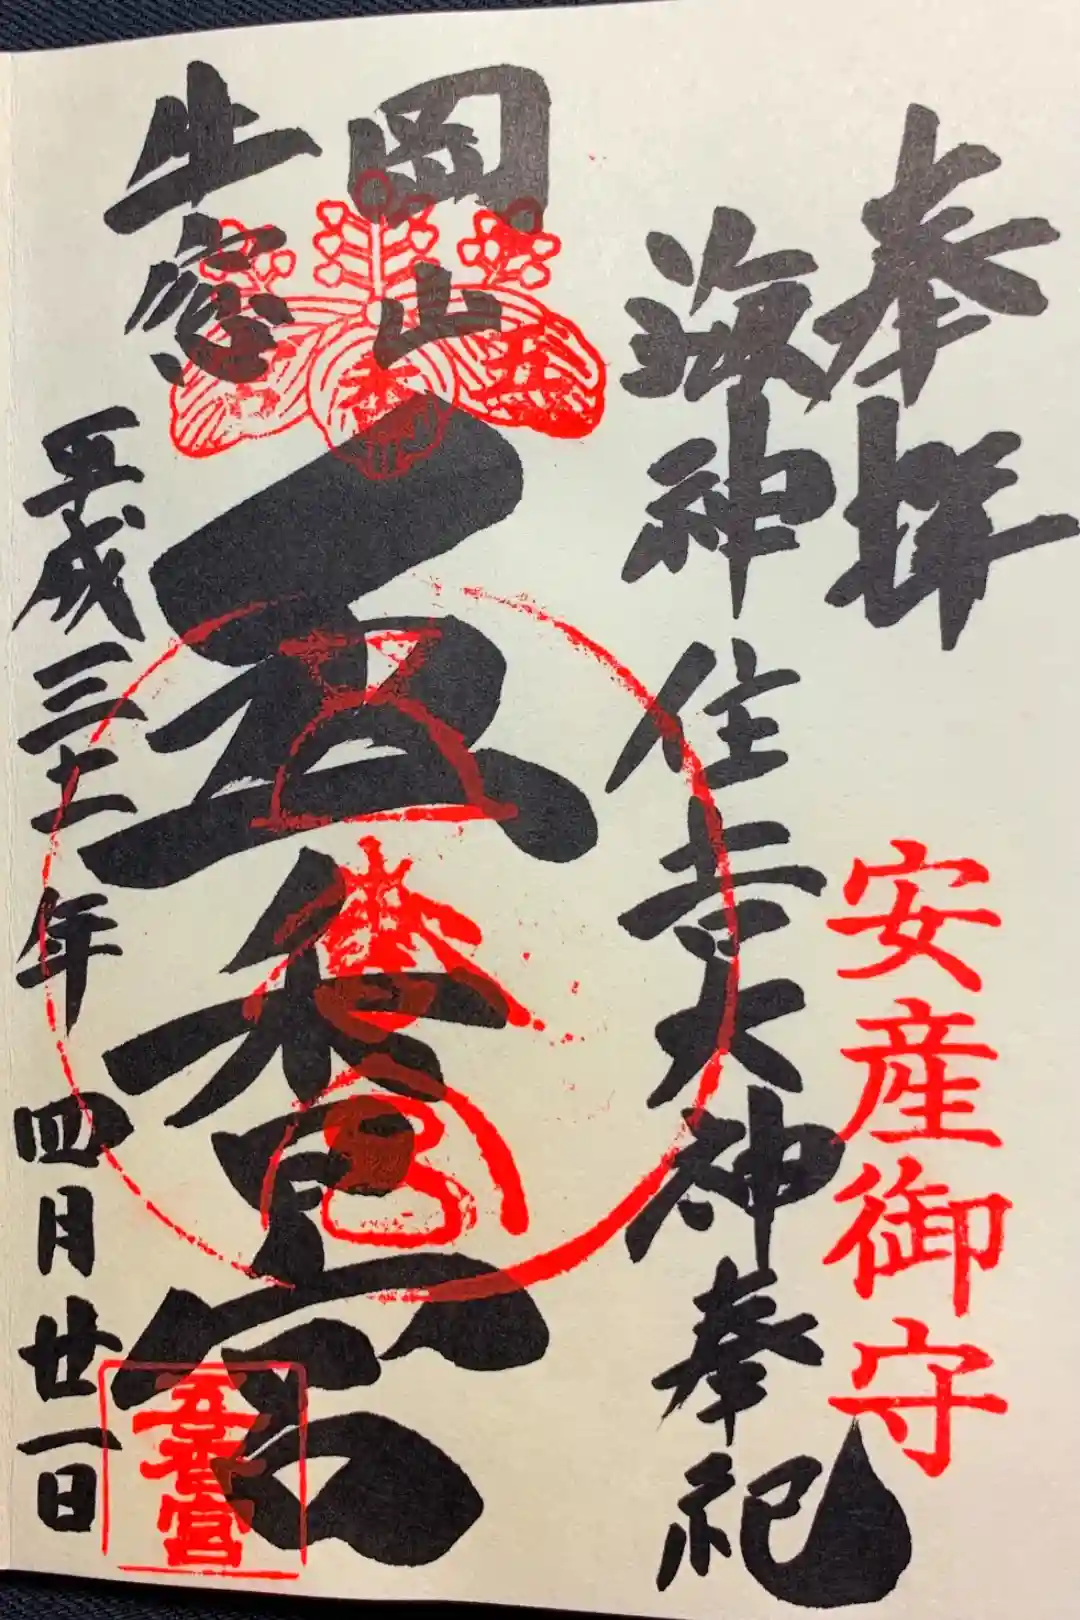 奉拝
安産御守
海神 住吉大神奉祀
岡山
五香宮
牛窓
平成三十一年 四月廿一日
五香宮